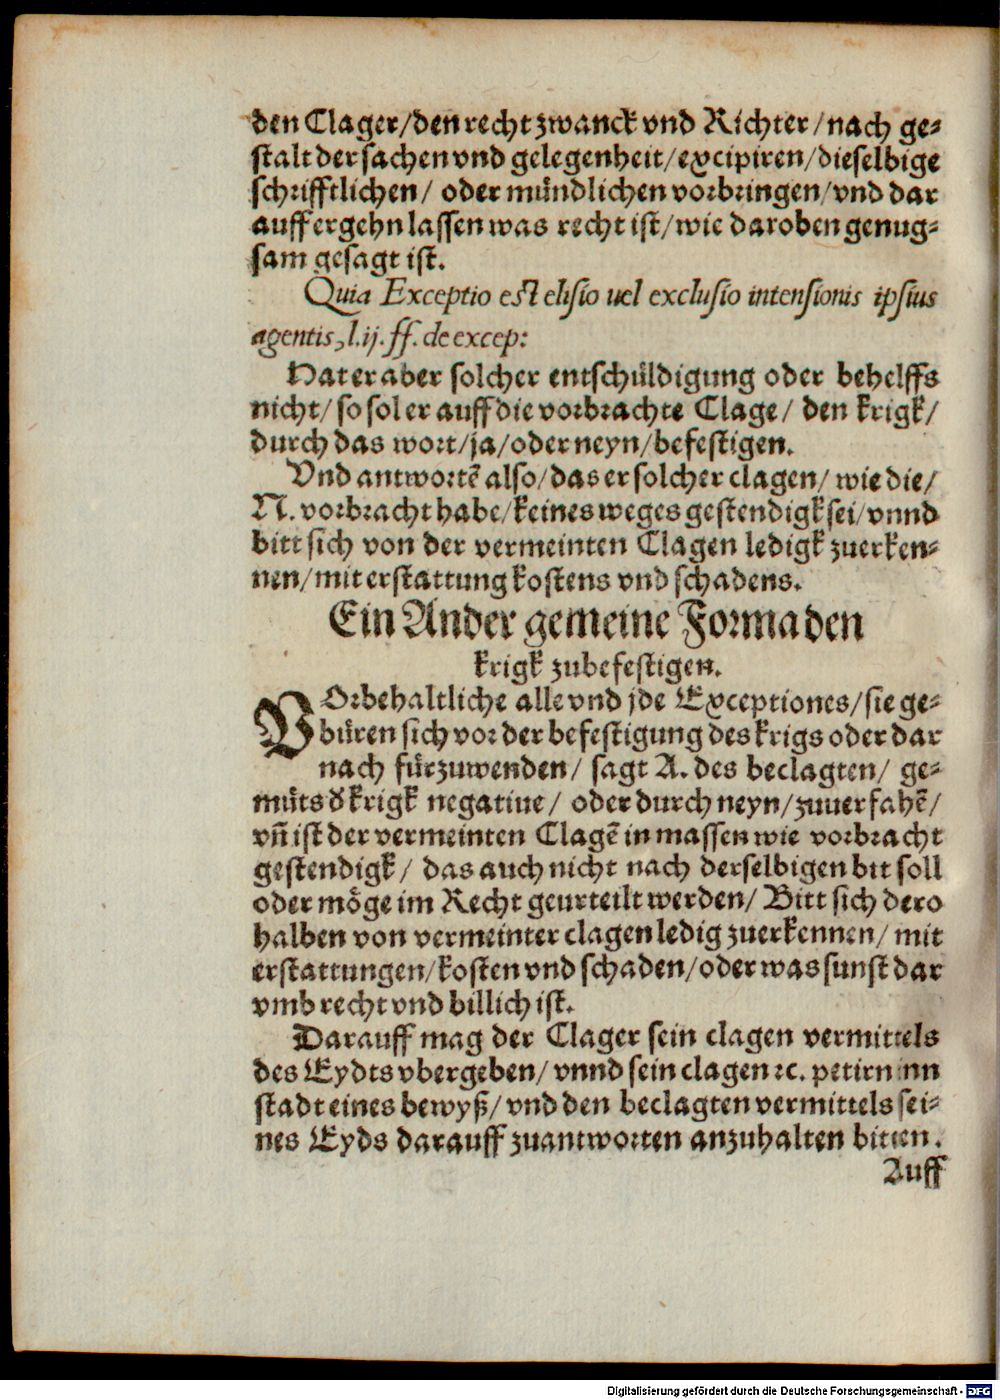 den Clager/den recht zwanck vnd Richter/nach ge-
stalt der sachen vnd gelegenheit/excipiren/dieselbige
schrifftlichen/ oder mündlichen vorbringen/vnd dar
auff ergehn lassen was recht ist/wie daroben genug-
sam gesagt ist.
Quia Exceptio est elisio uel exclusio intensionis ipsius
agentis, l.ij. ff. de excep:
Hat er aber solcher entschüldigung oder behelffs
nicht/ so sol er auff die vorbrachte Clage/ den krigk/
durch das wort/ja/oder neyn/befestigen.
Vnd antwortē also/das er solcher clagen/ wie die/
N. vorbracht habe/keines weges gestendigk sei/vnnd
bitt sich von der vermeinten Clagen ledigk zuerken-
nen/mit erstattung kostens vnd schadens.
Ein Ander gemeine Forma den
krigk zubefestigen.
VOrbehaltliche alle vnd jde Exceptiones/sie ge-
büren sich vor der befestigung des krigs oder dar
nach fürzuwenden/ sagt A. des beclagten/ ge-
müts d̕ krigk negatiue/ oder durch neyn/zuuerfahē/
vn̄ ist der vermeinten Clagē in massen wie vorbracht
gestendigk/ das auch nicht nach derselbigen bit soll
oder möge im Recht geurteilt werden/ Bitt sich dero
halben von vermeinter clagen ledig zuerkennen/ mit
erstattungen/kosten vnd schaden/oder was sunst dar
vmb recht vnd billich ist.
Darauff mag der Clager sein clagen vermittels
des Eydts vbergeben/ vnnd sein clagen ꝛc. petirn inn
stadt eines bewyß/ vnd den beclagten vermittels sei-
nes Eyds darauff zuantworten anzuhalten bitten.
Auff
Digitalisierung gefördert durch die Deutsche Forschungsgemeinschaft - DFG